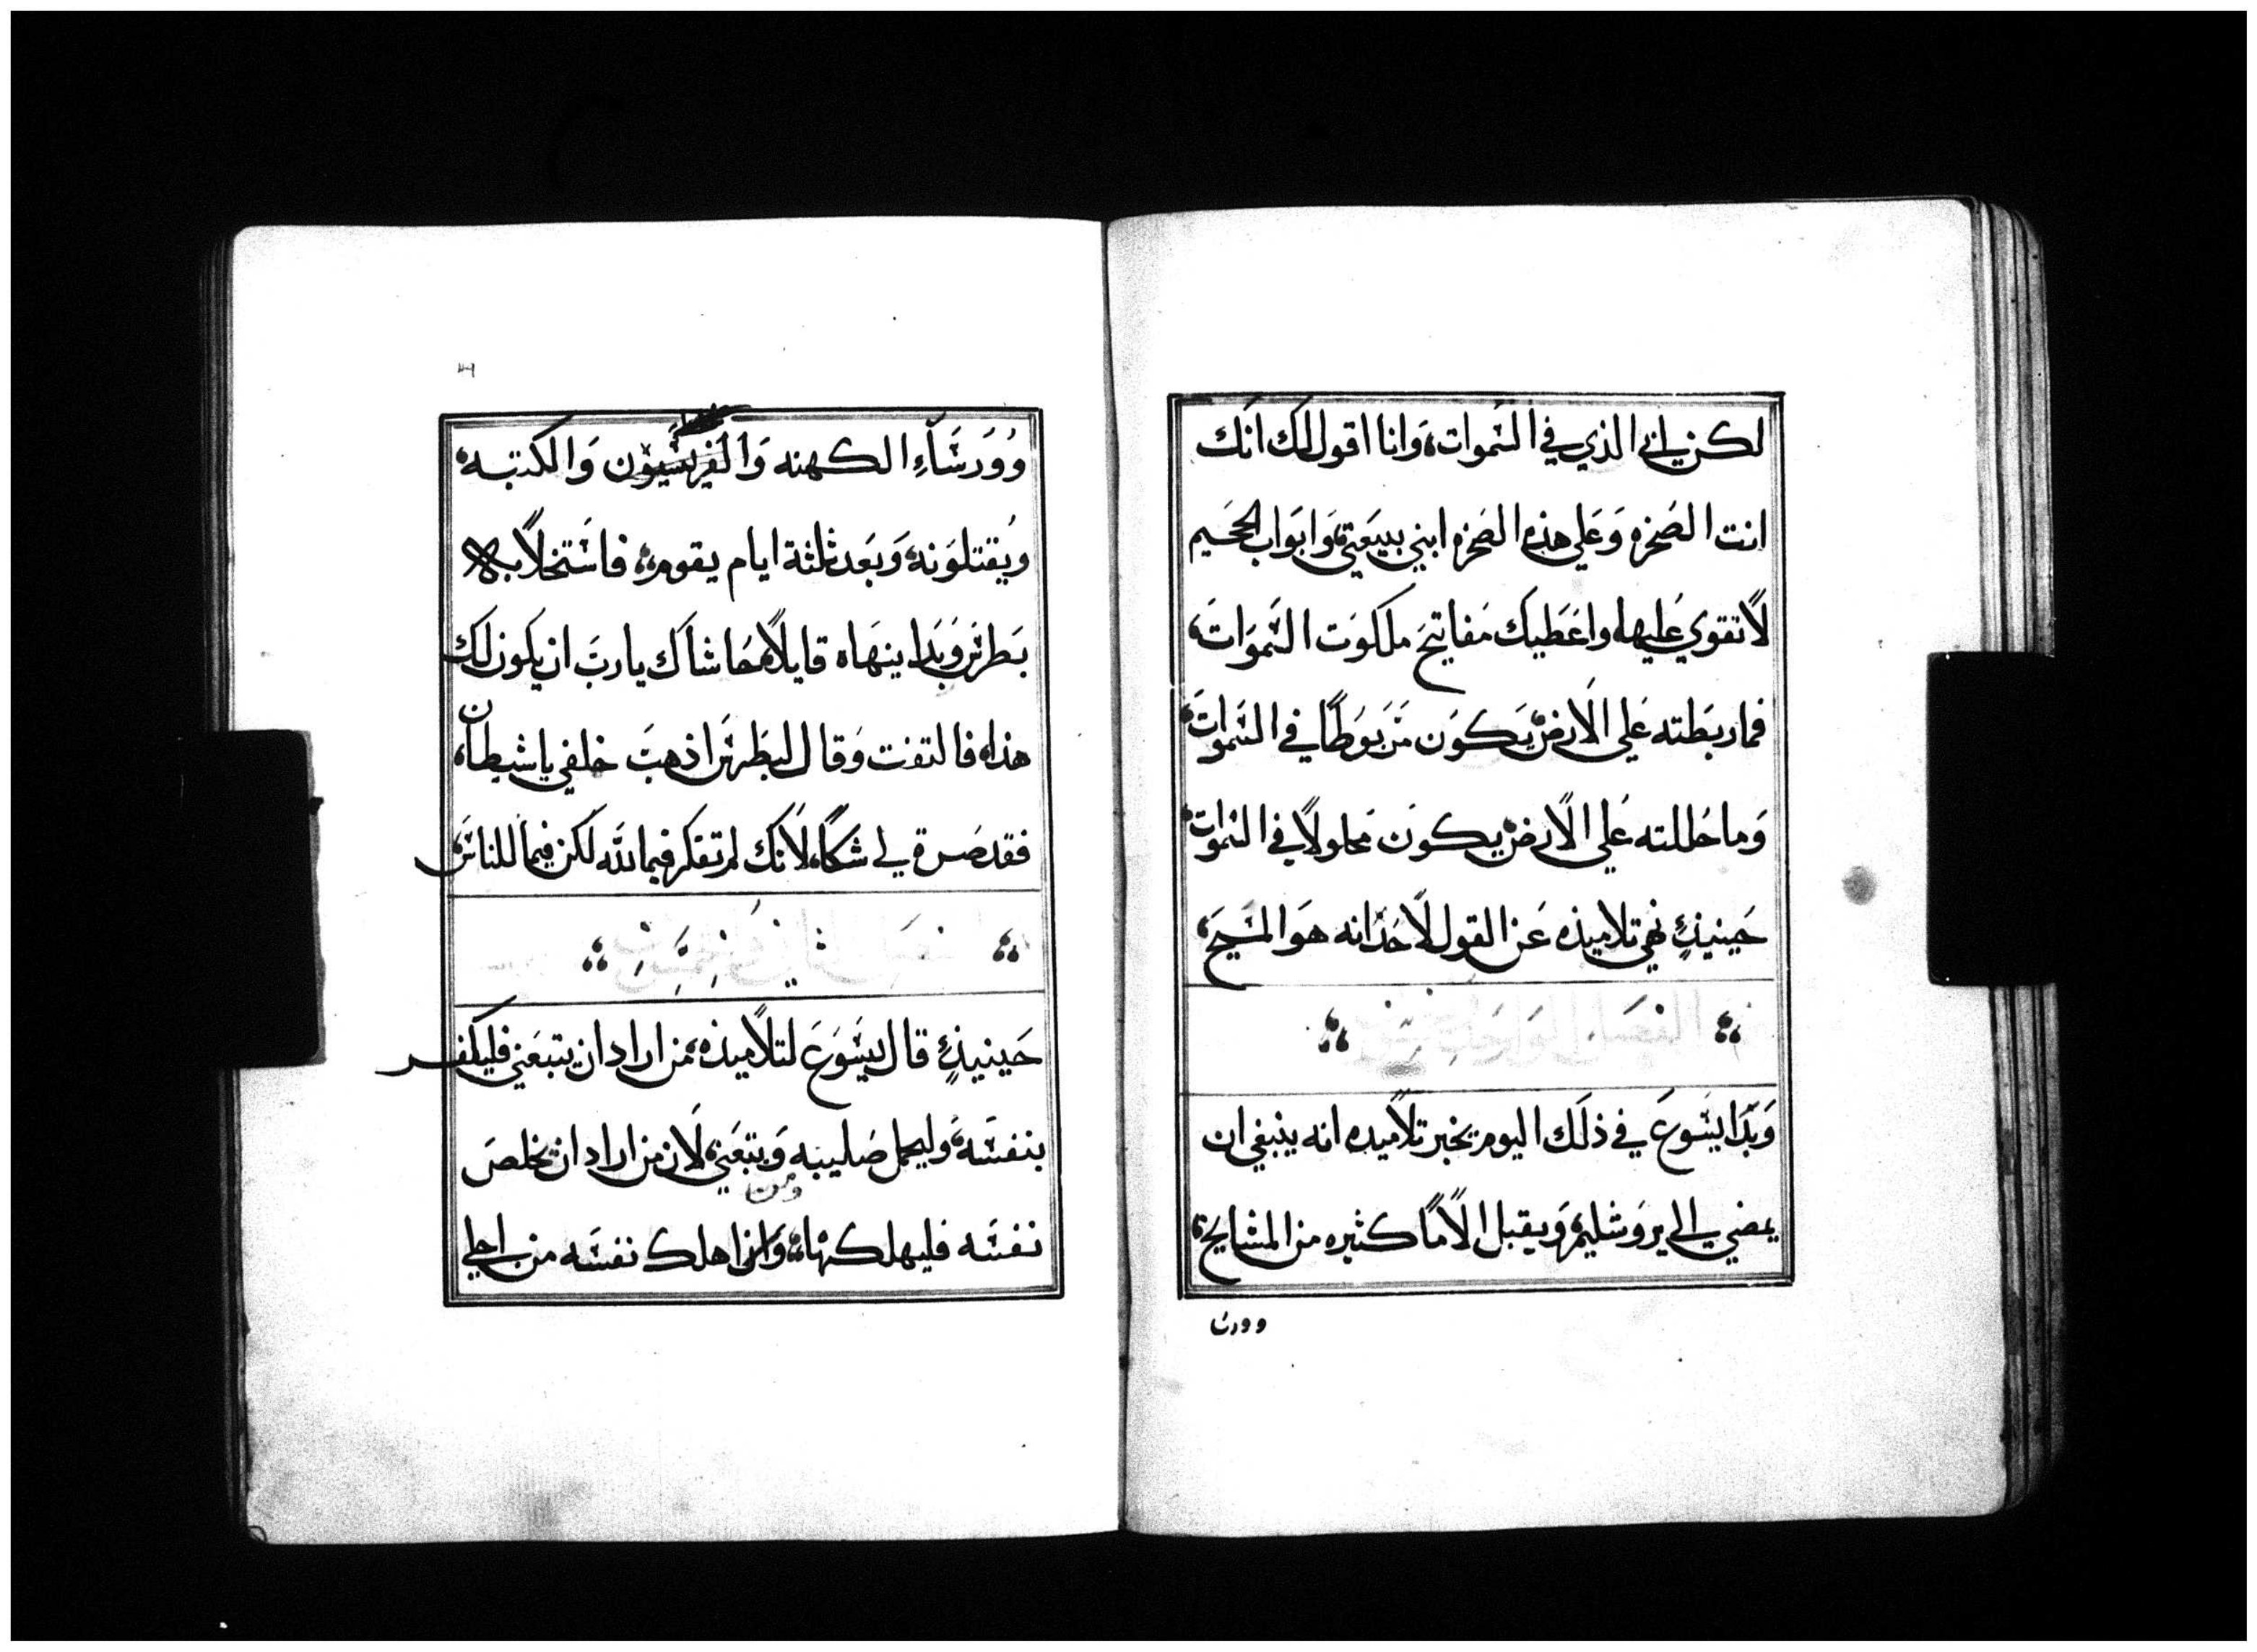 لكن ابي الذي في السموات، وانا اقول لك انك
انت الصخره وعلى هذه الصخره ابني بيعتي، وابواب الجحيم
لا تقوي عليها، واعطيك مفاتيح ملكوت السموات،
فما ربطته علي الارض، يكون مربوطًا في السموات،
وما حللته علي الارض، يكون محلولًا في السموات،
حينيذٍ نهي تلاميذه عن القول لاحد انه هو المسيح،
وبدا يسوع في ذلك اليوم يخبر تلاميده انه ينبغي ان
يمضي الي يروشليم، ويقبل الامًا كثيره من المشايخ،
وورسا
وورسآءِ الكهنه والفريسيون والكتبه،
ويقتلونه، وبعد ثلثة ايام يقوم، فاستخلا به
بطرس وبدا ينهاه قايلًا، حاشاك يا رب ان يكون لك
هذا، فالتفت وقال لبطرس اذهب خلفي يا شيطان،
فقد صرة لي شكًا، لانك لم تفكر فيما لله لكن فيما للناس،
حينيذٍ قال يسوع لتلاميذه، من اراد ان يتبعني فليكفر
بنفسه، وليحمل صليبه ويتبعني، لان من اراد ان يخلص
ومن
نفسه فليهلكها، اهلك نفسه من اجلي